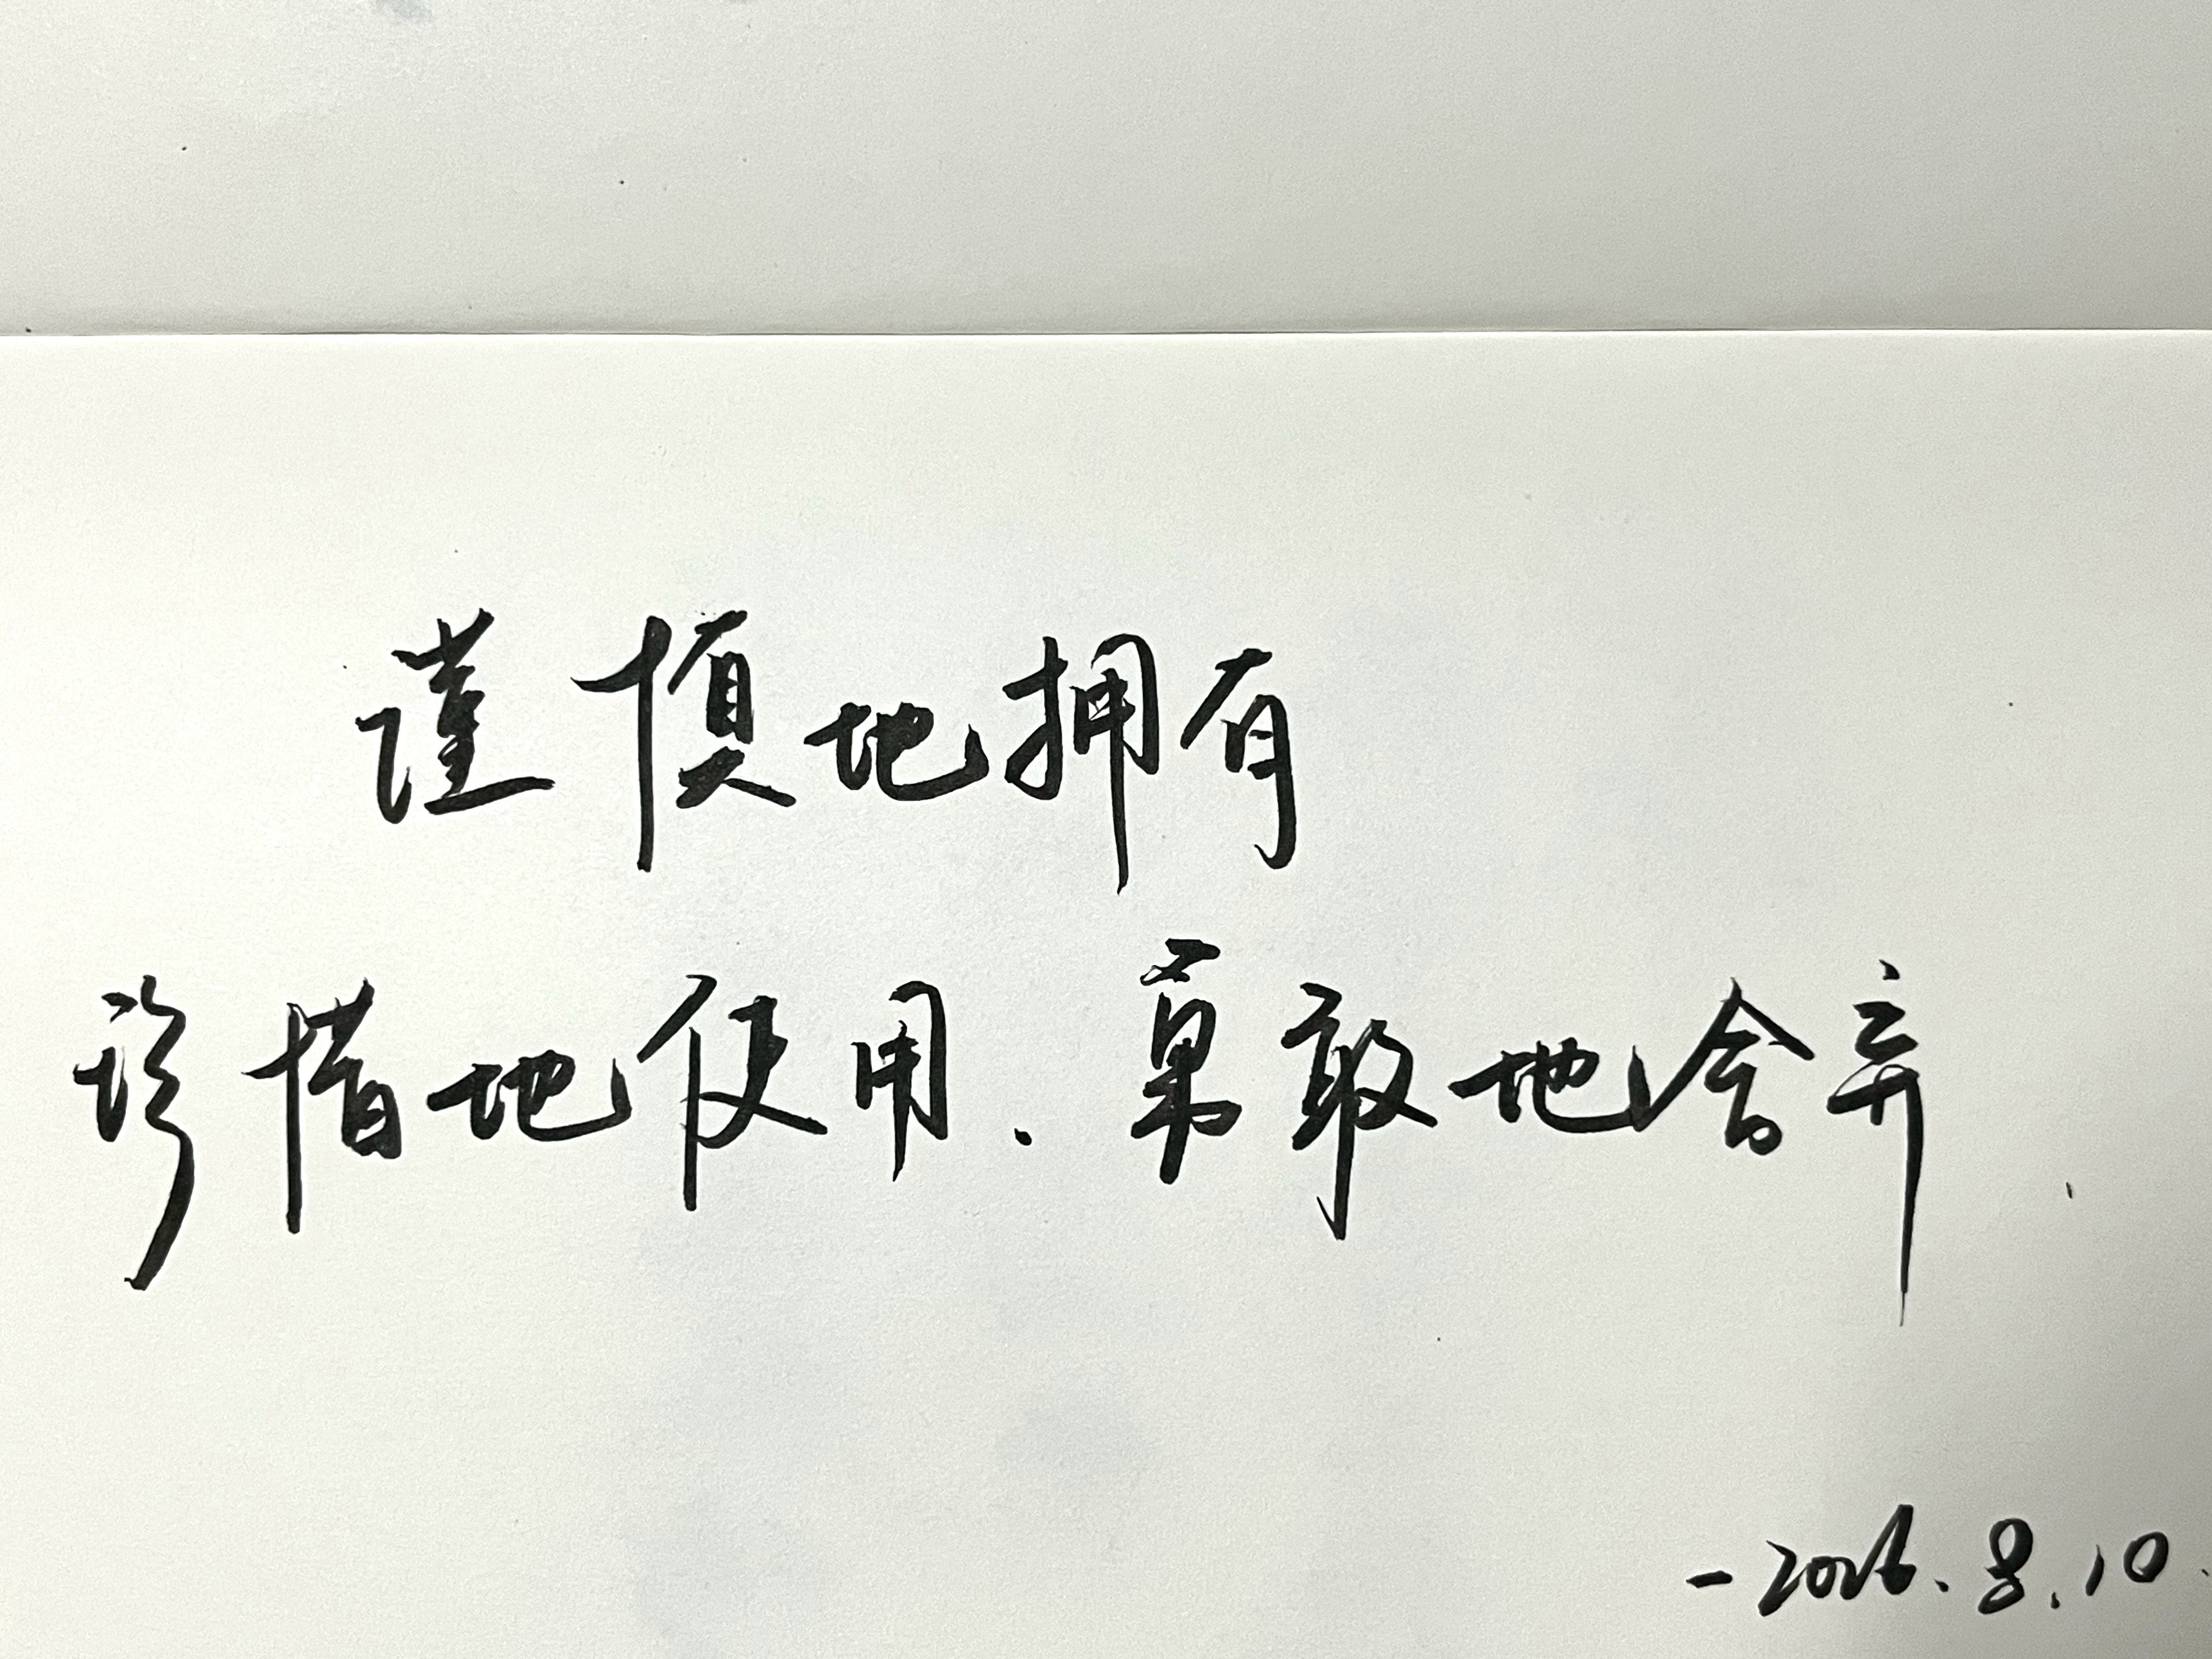 谨慎地拥有
珍惜地使用.勇敢地舍弃.
-2026.8.10.